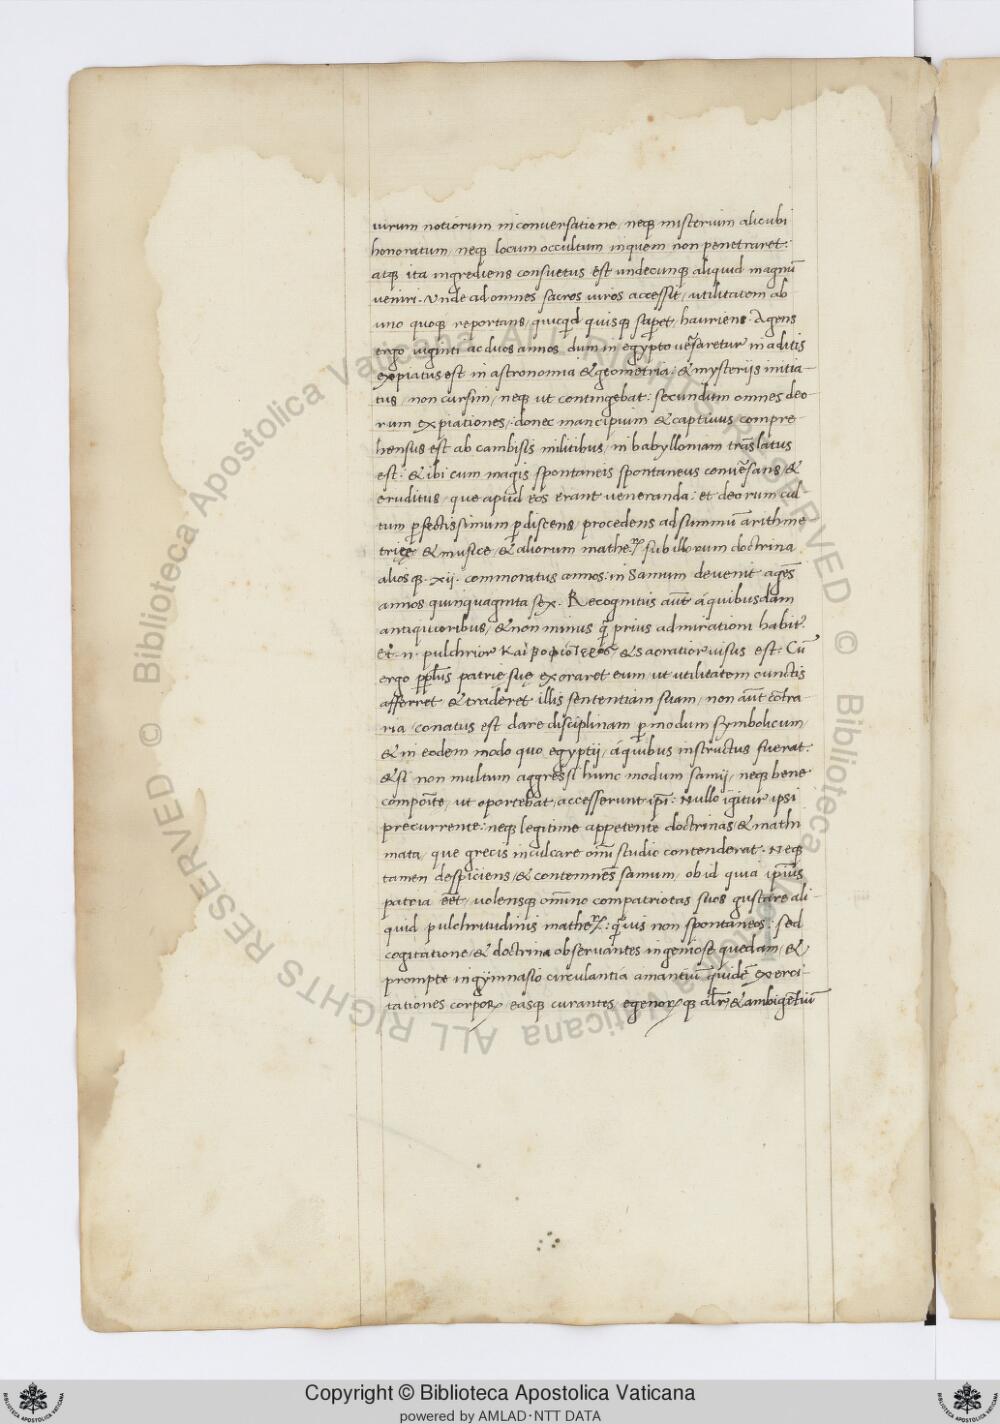 uirum notiorum in conuersatione / neq; misterium alicubi
honoratum / neq; locum occultum in quem non penetraret:
atq; ita ingrediens consuetus est undecunq; aliquid magnū
ueniri. Vnde ad omnes sacros uiros accessit / utilitatem ab
uno quoq; reportans / quicq̄d quisq; saperet / hauriens. Agens
ergo uiginti ac duos annos dum in egypto uersaretur in aditis
expiatus est in astronomia & geometria: & mysterijs initia-
tus / non cursim / neq; ut contingebat: secundum omnes deo-
rum expiationes / donec mancipium & captiuus compre-
hensus est ab cambisis militibus / in babylloniam trāslatus
est: & ibi cum magis spontaneis spontaneus conuersans / &
eruditus / que apud eos erant ueneranda: et deorum cul-
tum ꝑfectissimum ꝑdiscens / procedens ad summū arithme
trię & musice / & aliorum mathe.ꝝ sub illorum doctrina
aliosq; .xij. commoratus annos: in Samum deuenit agēs
annos quinquaginta sex. Recognitus aūt á quibusdam
antiquioribus / & non minus q̄ prius admirationi habit᷒.
et .n. pulchrior & sacratior uisus est. Cū
ergo patrie suę exoraret eum / ut utilitatem cunctis
afferret & traderet illis sententiam suam / non aūt cōtra
ria / conatus est dare disciplinam ꝑ modum symbolicum
& in eodem modo quo egyptij / á quibus instructus fuerat:
& si non multum aggressi hunc modum samij / neq; bene
compoīte / ut oportebat / accesserunt ip̄i: Nullo igitur ipsi
precurrente: neq; legitime appetente doctrinas & math
mata / que grecis inculcare om̄i studio contenderat. Neq;
tamen despiciens / & contemnēs samum / ob id quia ip̄ius
patria eēt / uolensq; om̄ino compatriotas suos gustare ali-
quid pulchritudinis mathe.ꝝ: q̄uis non spontaneos: sed
cogitatione / & doctrina obseruantes ingeniose quedam / &
prompte in gymnasio circulantia amantiū quidē exerci-
tationes corporꝝ / easq; curantes egenorꝝq; & ambigētiū
Copyright © Biblioteca Apostolica Vaticana
powered by AMLAD·NTT DATA